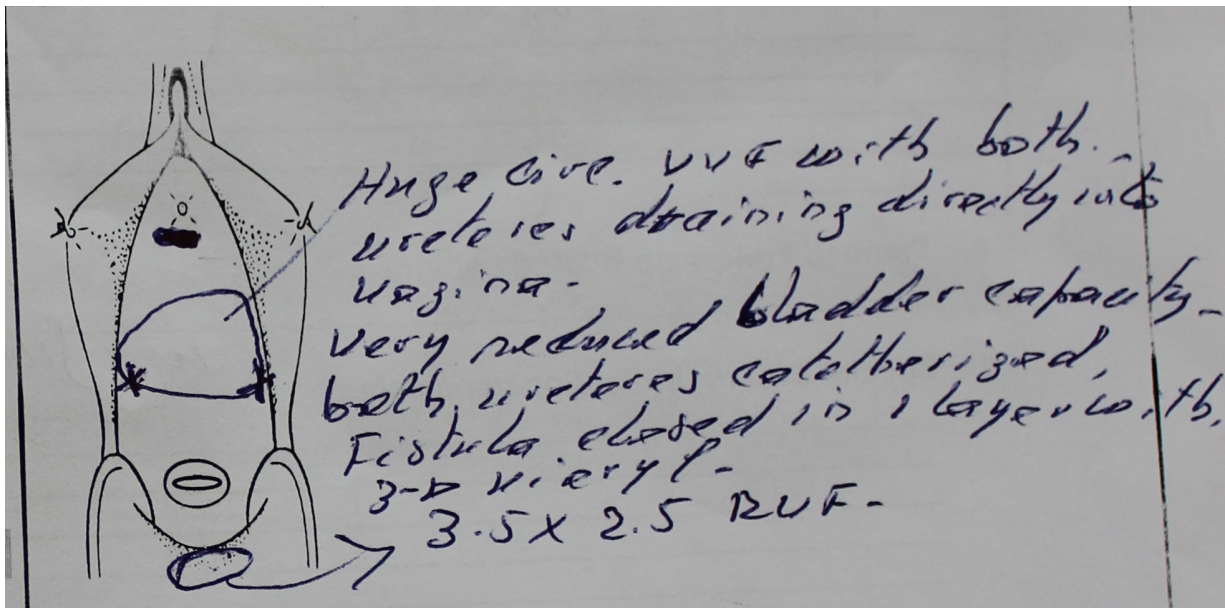 Huge circ. VVF with both
ureteres draining directly into
vagina.
very reduced bladder capacity.
both ureteres catetherized,
Fistula closed in 1 layer with,
3-0 vicryl.
3.5 x 2.5 RVF.